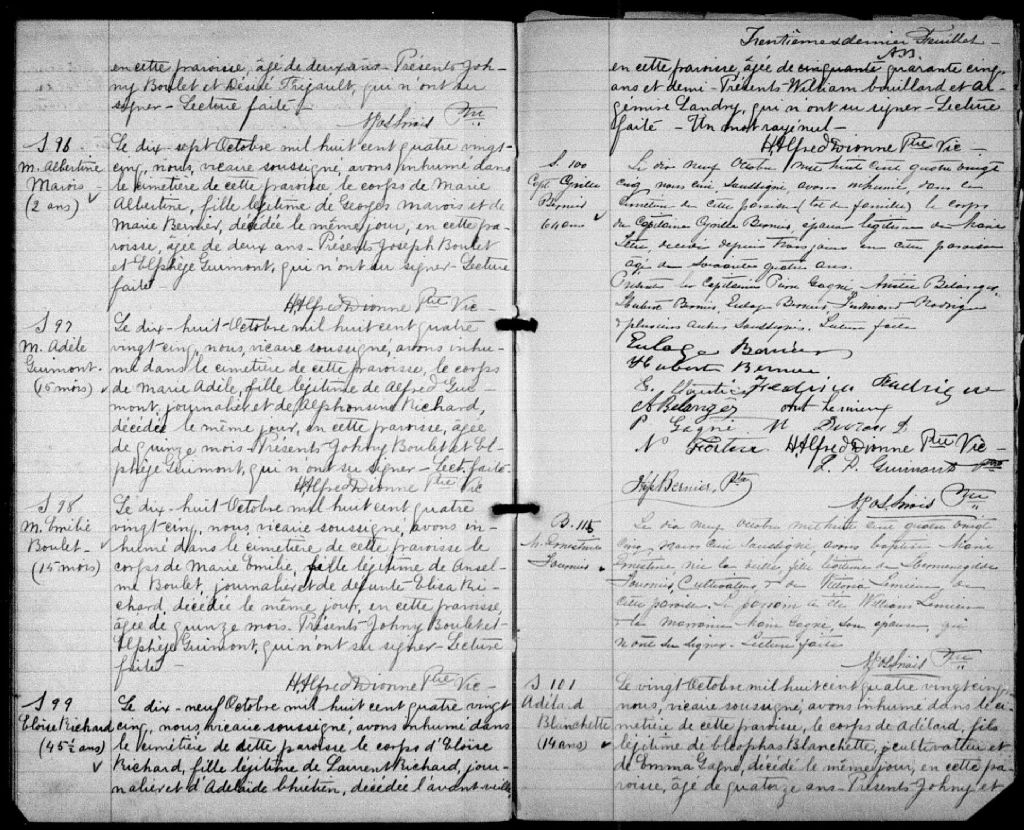 en cette paroisse, âgé de deux ans - Présents Joh-
ny Boulet et Désiré Thigault, qui n'ont su
signer - Lecture faite -
Ptre
S 96
M. Albertine
Marois
(2 ans)
Le dix-sept Octobre mil huit cent quatre vingt
cinq, nous, vicaire soussigné, avons inhumé dans
le cimetière de cette paroisse le corps de Marie
Albertine, fille légitime de Georges Marois et de
Marie Bernier, décédée le même jour, en cette pa-
roisse, âgée de deux ans - Présents Joseph Boulet
et Elphège Guimont, qui n'ont su signer - Lecture
faite -
H. Alfred Dionne Ptre Vic -
S 97
M. Adèle
Guimont.
(15 mois)
Le dix-huit Octobre mil huit cent quatre
vingt-cinq, nous, vicaire soussigné, avons inhu-
mé dans le cimetière de cette paroisse, le corps
de Marie Adèle, fille légitime de Alfred Gui-
mont, journalier et de Alphonsine Richard,
décédée le même jour, en cette paroisse, âgée
de quinze mois - Présents Johny Boulet et El-
phège Guimont, qui n'ont su signer - Lect. faite -
H. Alfred Dionne Ptre Vic
S 98
M. Emilie
Boulet -
(15 mois)
Le dix-huit Octobre mil huit cent quatre
vingt-cinq, nous, vicaire soussigné, avons in-
humé dans le cimetière de cette paroisse le
corps de Marie Emilie, fille légitime de Ansel-
me Boulet, journalier et de défunte Elisa Ri-
chard, décédée le même jour, en cette paroisse,
âgée de quinze mois. Présents Johny Boulet et
Elphège Guimont, qui n'ont su signer - Lecture
faite -
H. Alfred Dionne Ptre Vic -
S 99
Eloïse Richard
(45 ½ ans)
Le dix-neuf Octobre mil huit cent quatre vingt
cinq, nous, vicaire soussigné, avons inhumé dans
le cimetière de cette paroisse le corps d'Eloïse
Richard, fille légitime de Laurent Richard, jour-
nalier et d'Adelaïde Chrétien, décédée l'avant-veille,
Trentième & dernier Feuillet -
en cette paroisse, âgée de cinquante quarante cinq
ans et demi - Présents William Bouillard et Ar-
gémire Landry, qui n'ont su signer - Lecture
faite - Un mot rayé nul -
H. Alfred Dionne Ptre Vic -
S. 100
Capt. Cyrille
Bernier
64 ans
Le dix neuf Octobre mil huit cent quatre vingt
cinq nous curé soussigné, avons inhumé, dans le
cimetière de cette paroisse ( de famille) le corps
du Capitaine Cyrille Bernier, époux légitime de Marie
décédé depuis trois jours en cette paroisse
âgé de soixante quatre ans.
Présents les Capitaines Pierre Gagné, Amédée Bélanger,
Hubert Bernier, Eulage Bernier, Rodrigue
& plusieurs autres soussignés. Lecture faite
Eulage Bernier
Hubert Bernier
A Belanger
P Gagné
N Fortin H. Alfred Dionne Ptre Vic -
Guimont Ptre
Jos Bernier, Ptre
Ptre
B. 115
M. Ernestine
Fournier
Le dix neuf Octobre mil huit cent quatre vingt
cinq nous curé soussigné, avons baptisé Marie
Ernestine née la veille, fille légitime de Hermenegilde
Fournier, Cultivateur, & de Victoria Lemieux de
cette paroisse. Le parrain a été William Lemieux
& la marraine Marie Gagné, son épouse, qui
n'ont su signer. Lecture faite
Ptre
S 101
Adélard
Blanchette
(14 ans)
Le vingt Octobre mil huit cent quatre vingt cinq,
nous, vicaire soussigné, avons inhumé dans le ci-
metière de cette paroisse, le corps de Adélard, fils
légitime de Cléophas Blanchette, cultivateur et
de Emma Gagné, décédé le même jour, en cette pa-
roisse, âgé de quatorze ans - Présents Johny et